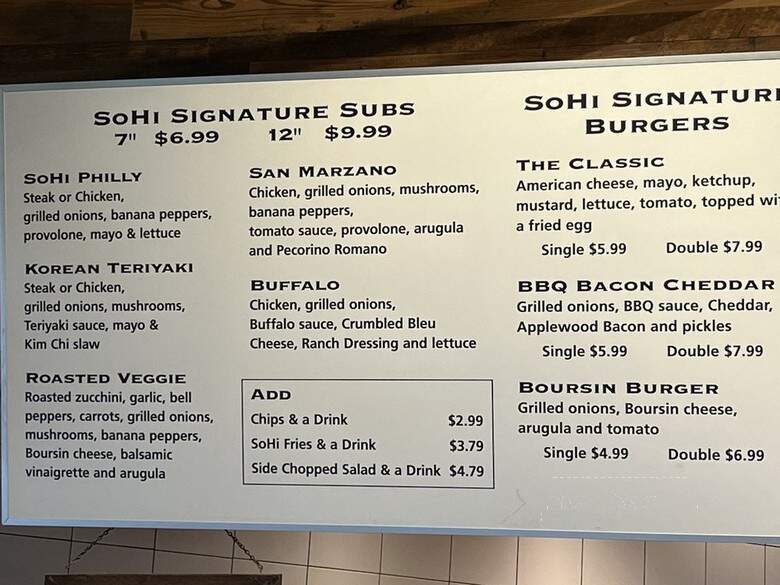 SoHi Signature Subs
7" $6.99 12" $9.99
SoHi Philly
Steak or Chicken,
grilled onions, banana peppers,
provolone, mayo & lettuce
Korean Teriyaki
Steak or Chicken,
grilled onions, mushrooms,
Teriyaki sauce, mayo &
Kim Chi slaw
Roasted Veggie
Roasted zucchini, garlic, bell
peppers, carrots, grilled onions,
mushrooms, banana peppers,
Boursin cheese, balsamic
vinaigrette and arugula
San Marzano
Chicken, grilled onions, mushrooms,
banana peppers,
tomato sauce, provolone, arugula
and Pecorino Romano
Buffalo
Chicken, grilled onions,
Buffalo sauce, Crumbled Bleu
Cheese, Ranch Dressing and lettuce
Add
Chips & a Drink $2.99
SoHi Fries & a Drink $3.79
Side Chopped Salad & a Drink $4.79
SoHi Signatur
Burgers
The Classic
American cheese, mayo, ketchup,
mustard, lettuce, tomato, topped wi
a fried egg
Single $5.99 Double $7.99
BBQ Bacon Cheddar
Grilled onions, BBQ sauce, Cheddar,
Applewood Bacon and pickles
Single $5.99 Double $7.99
Boursin Burger
Grilled onions, Boursin cheese,
arugula and tomato
Single $4.99 Double $6.99